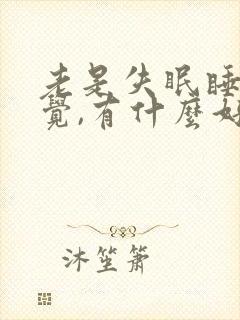 老是失眠睡
覺,有什麼好
沐笙簫